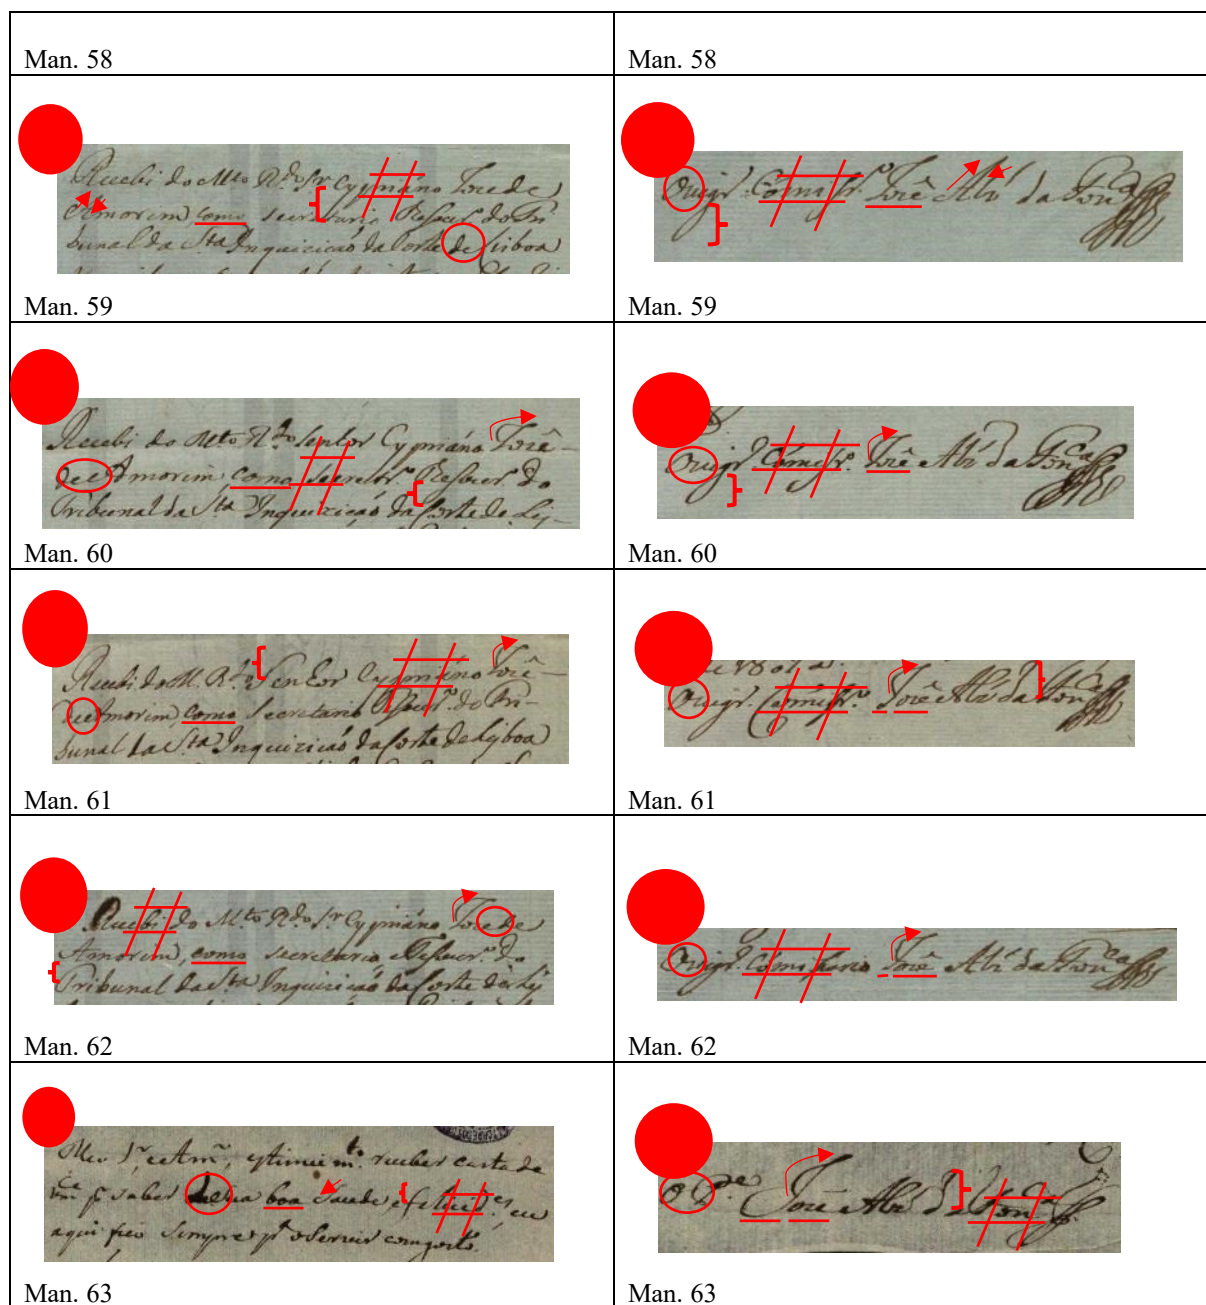 Man. 58
Man. 58
Recebi do Mto R.do Sr. Cypriáno Joze de
Amorim como secretario Thesour. do Tri
bunal da Sta Inquizicaó da Corte de Lisboa
Man. 59
Origr. Comisr.o José Alz da Fonca
Man. 59
Recebi do Mto R.do Senhor Cypriáno Jozê
de Amorim como Secretr. Thesour. do
Tribunal da Sta Inquizicaó da Corte de Lij-
Man. 60
Origr. Comisr.o José Alz da Fonca
Man. 60
Recebi do M. R.do Senhor Cypriáno Jozê
de Amorim como Secretario Thesour. do Tri-
bunal da Sta Inquizicaó da Corte de Lijboa
Man. 61
Origr. Comisr.o José Alz da Fonca
Man. 61
Recebi do M.to R.do Sr Cypriáno Joze de
Amorim, como secretario, e Thesour.o do
Tribunal da Sta Inquizicaó da Corte de Lij
Man. 62
Origr. Comisario José Alz da Fonca
Man. 62
Meu Sr. e Am.o, estimei m.to receber carta de
vm.ce pa saber da sua boa saude, e felicid.es, eu
aqui fico sempre pa o servir com gosto.
Man. 63
O P.e José Alz da Fonca
Man. 63